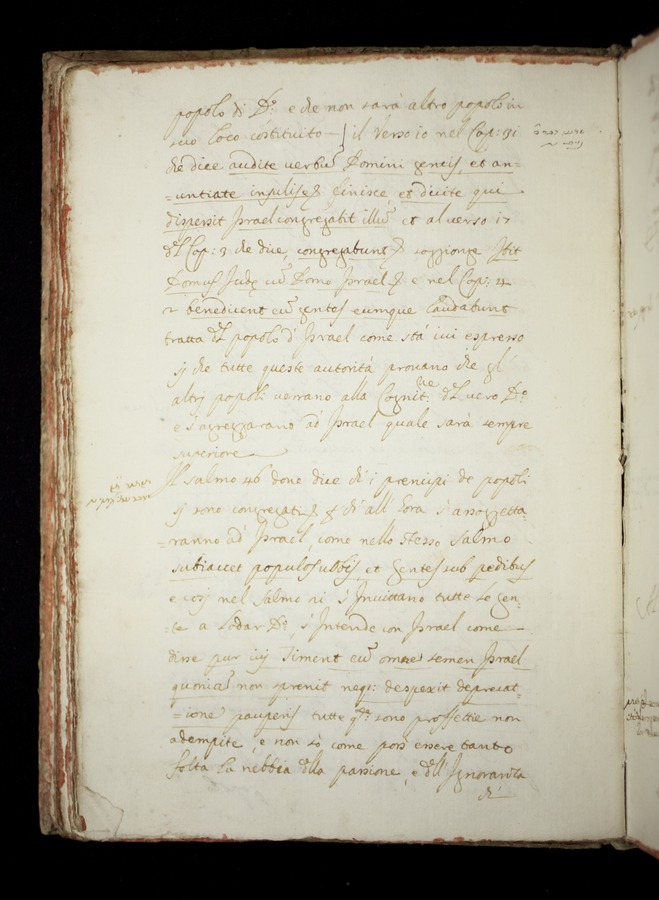 popolo di D.º e che non sarà altro popolo in
suo loco côstituito — } il Verso 10 nel Cap: 31
che dice audite verbũ Domini gentes, et an-
=untiate insulis & finisce, et dicite qui
dispersit Israel congregabit illũ et al verso 17
del Cap: 3 che dice, congregabunt & soggionge Ibit
Domus Judę cũ Domo Israel & e nel Cap: 4
2 benedicent eũ gentes eumque laudabunt
tratta del popolo d' Israel come stà ivi espresso
sj che tutte queste autorità provano che gl'
altri popoli verrano alla Cognit.ne del vero D.º
e s' agregarano ad Israel quale sarà sempre
superiore
Il salmo 46 dove dice ch' i prencipi de popoli
sj sono congregati & ch' all' hora s' assogetta
=ranno ad Israel, come nello stesso salmo
subiaccet populos nobis, et gentes sub pedibus
e così nel salmo 21 s' Invittano tutte le gen:
=te a lodar D.º, s' Intende con Israel come
disse pur ivj Timent eũ omne semen Israel
quoniã non sprevit neq: despexit deprecat-
=ione pauperis tutte q.te sono proffettie non
adempite, e non sò come possi essere tanto
folta la nebbia della passione, e dell' Ignoranza
ch'